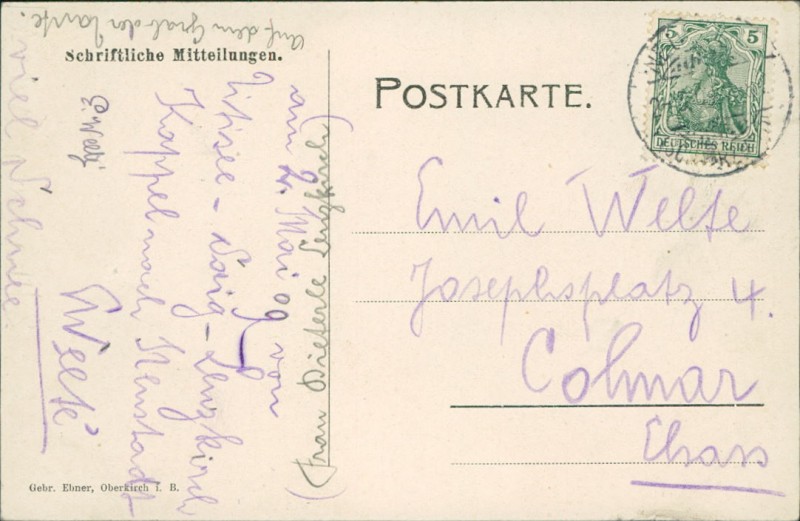 Auf dem Grab der Tante.
Schriftliche Mitteilungen.
am 2. Mai 09 von
Titisee - Saig - Lenzkirch
Kappel nach Neustadt
Welte
viel Schnee
(Frau Dieterle Lenzkirch)
Gebr. Ebner, Oberkirch i. B.
POSTKARTE.
5 5
DEUTSCHES REICH
Emil Welte
Josephsplatz 4.
Colmar
Elsass